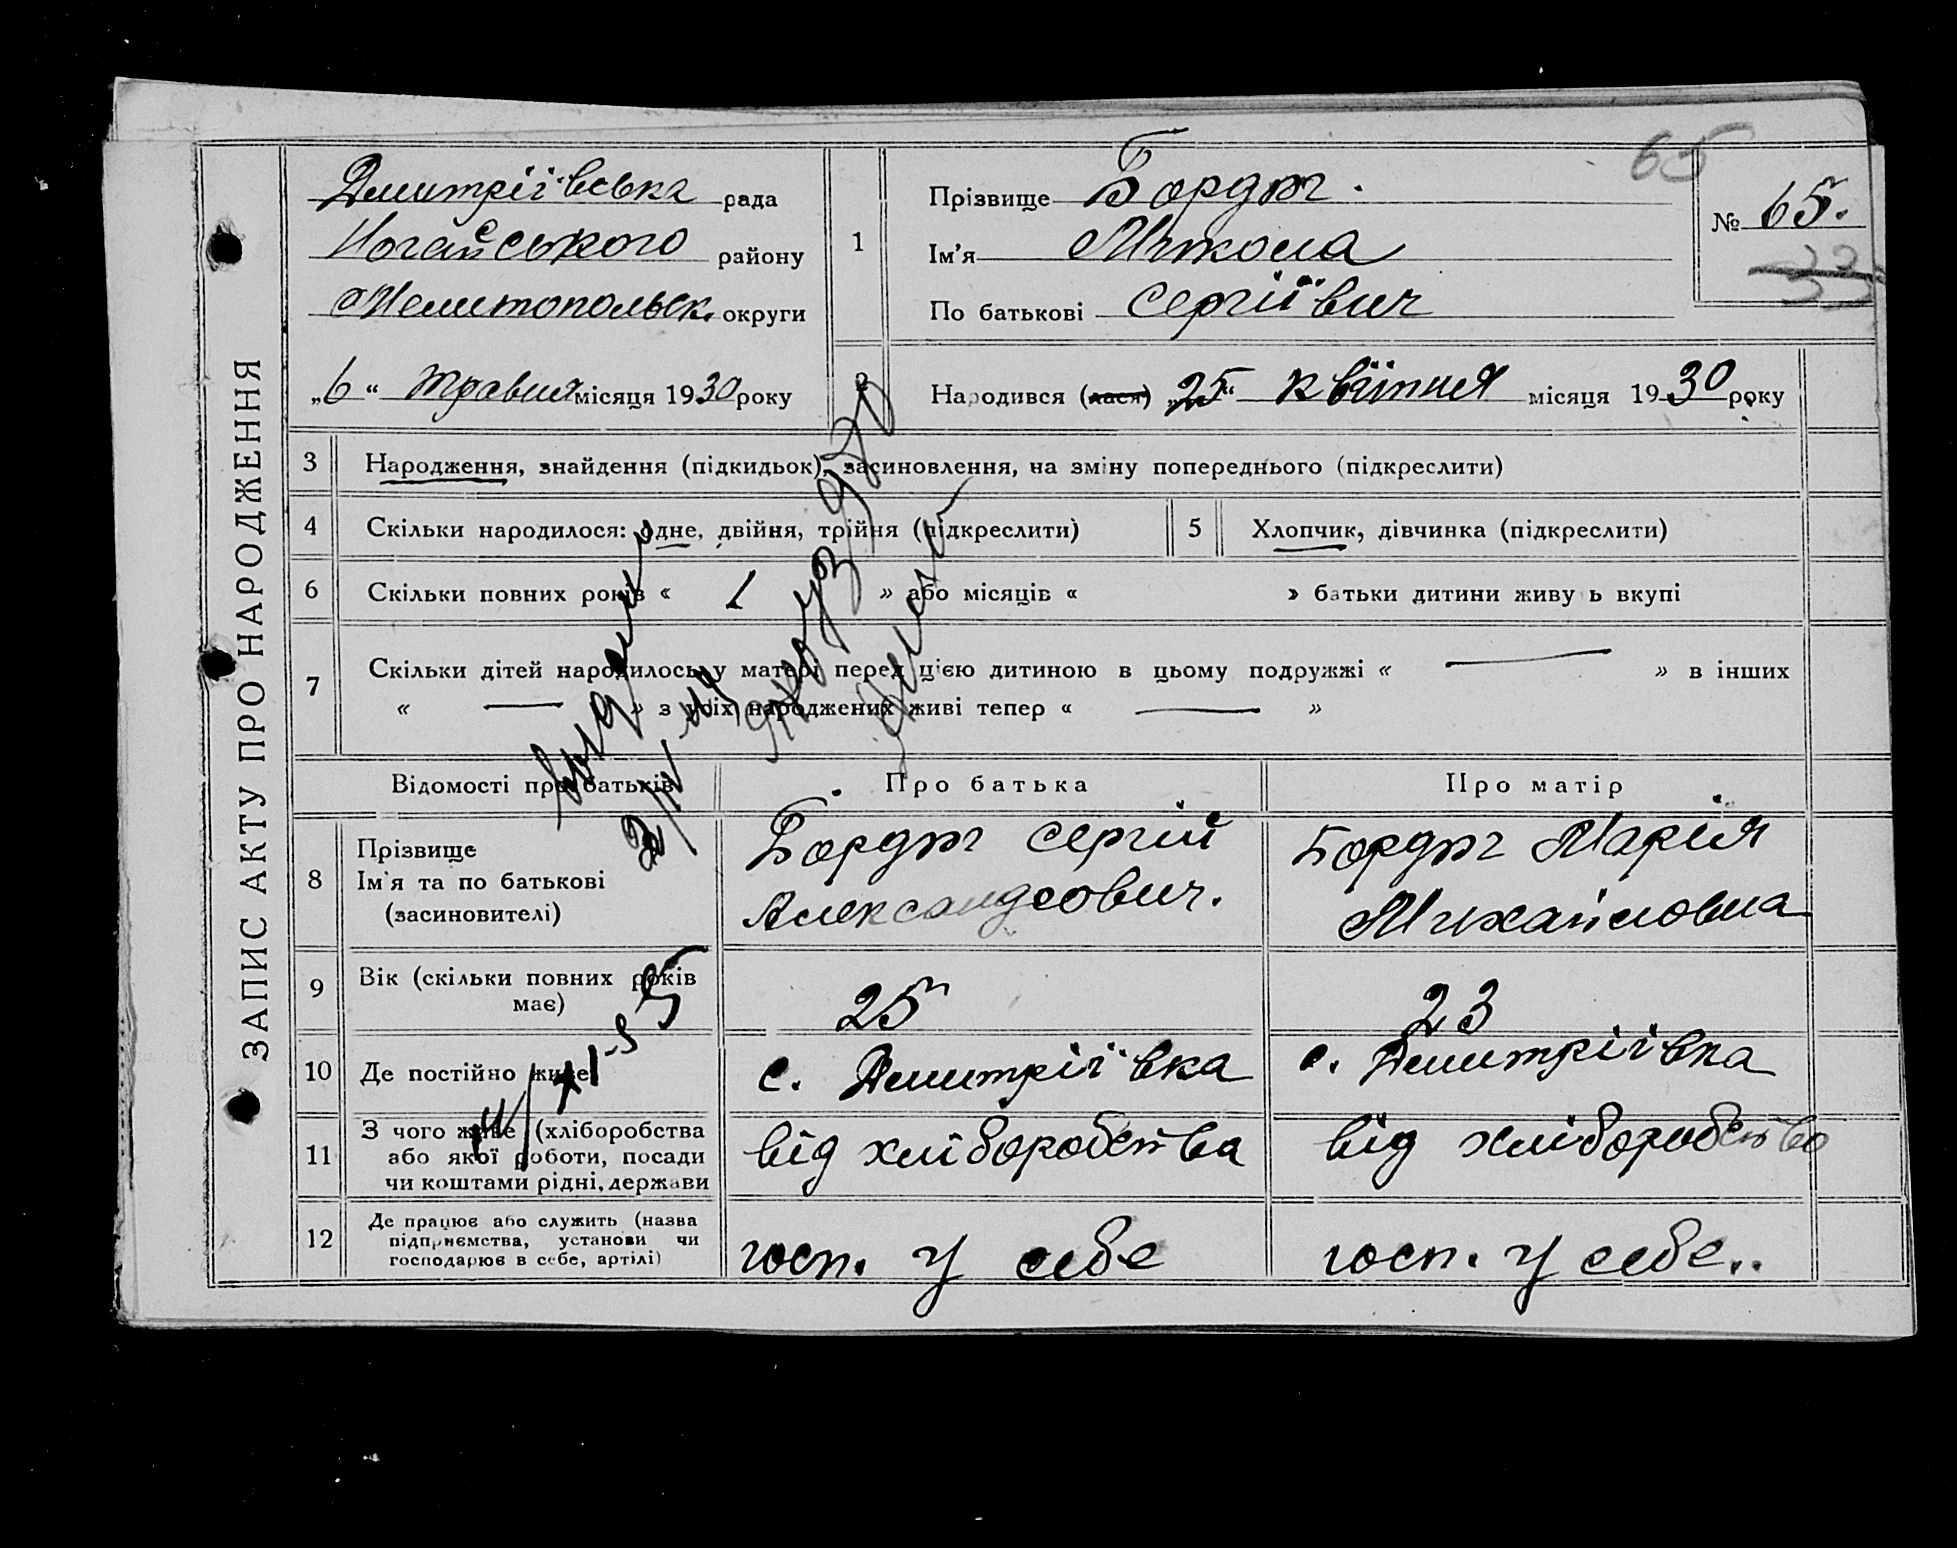 65
ЗАПИС АКТУ ПРО НАРОДЖЕННЯ
Дмитріївська рада
Ногайського району
Мелитопольськ. округи
„6“ травня місяця 1930 року
1
Прізвище Бордюг.
Ім'я Микола
По батькові Сергіївич
№ 65.
33
2
Народився (лася) „25“ квітня місяця 1930 року
3 Народження, знайдення (підкидьок), засиновлення, на зміну попереднього (підкреслити)
4 Скільки народилося: одне, двійня, трійня (підкреслити)
5 Хлопчик, дівчинка (підкреслити)
6 Скільки повних років « 1 » або місяців « » батьки дитини живу ь вкупі
7 Скільки дітей народилось у матері перед цією дитиною в цьому подружжі « — » в інших
« — » з усіх народжених живі тепер « — »
Відомості про батьків Про батька Про матір
8 Прізвище
Ім'я та по батькові
(засиновителі)
Бордюг Сергій
Александрович.
Бордюг Мария
Михайловна
9 Вік (скільки повних років
має)
25
23
10 Де постійно живе
с. Дмитріївка
с. Дмитріївка
11 З чого живе (хліборобства
або якої роботи, посади
чи коштами рідні, держави
від хліборобства
від хліборобство
12 Де працює або служить (назва
підприємства, установи чи
господарює в себе, артілі)
госп. у себе
госп. у себе..